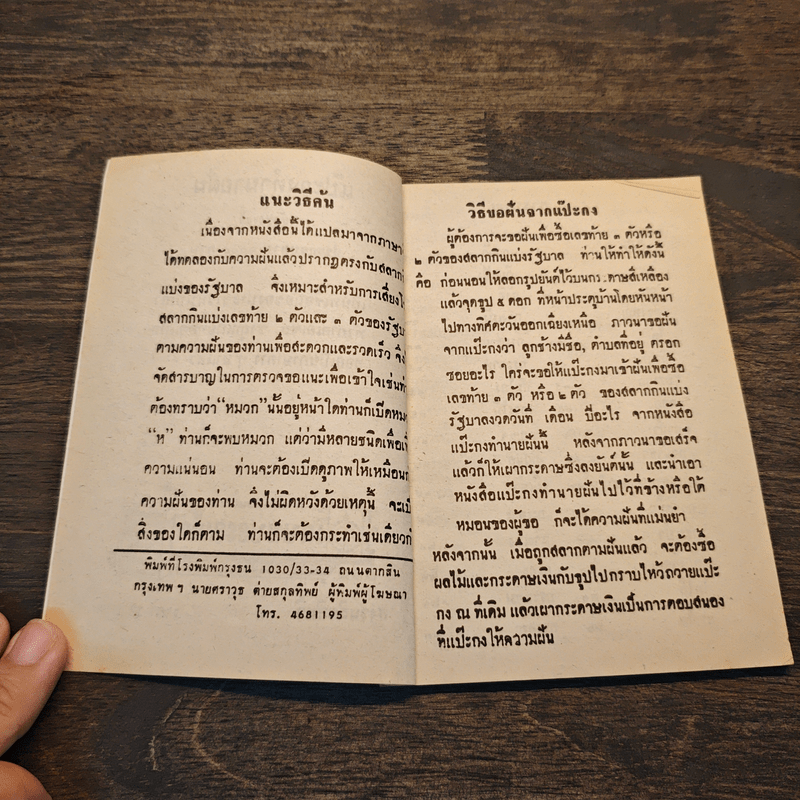 แนะวิธีค้น
เนื่องจากหนังสือนี้ได้แปลมาจากภาษา
ได้ทดลองกับความฝันแล้วปรากฏตรงกับสลาก
แบ่งของรัฐบาล จึงเหมาะสำหรับการเสี่ยง
สลากกินแบ่งเลขท้าย ๒ ตัวและ ๓ ตัวของรัฐบ
ตามความฝันของท่านเพื่อสะดวกและรวดเร็ว จึง
จัดสารบาญในการตรวจขอแนะเพื่อเข้าใจเช่นท่า
ต้องทราบว่า "หมวก" นั้นอยู่หน้าใดท่านก็เปิดหม
"ห" ท่านก็จะพบหมวก แต่ว่ามีหลายชนิดเพื่อ
ความแน่นอน ท่านจะต้องเปิดดูภาพให้เหมือน
ความฝันของท่าน จึงไม่ผิดหวังด้วยเหตุนี้ จะเป็
สิ่งของใดก็ตาม ท่านก็จะต้องกระทำเช่นเดียวกั
พิมพ์ที่โรงพิมพ์กรุงธน 1030/33-34 ถนนตากสิน
กรุงเทพฯ นายศราวุธ ค่ายสกุลทิพย์ ผู้พิมพ์ผู้โฆษณา
โทร. 4681195
วิธีขอฝันจากแป๊ะกง
ผู้ต้องการจะขอฝันเพื่อซื้อเลขท้าย ๓ ตัวหรือ
๒ ตัวของสลากกินแบ่งรัฐบาล ท่านให้ทำให้ดังนี้
คือ ก่อนนอนให้ลอกรูปยันต์ไว้บนกระดาษสีเหลือง
แล้วจุดธูป ๕ ดอก ที่หน้าประตูบ้านโดยหันหน้า
ไปทางทิศตะวันออกเฉียงเหนือ ภาวนาขอฝัน
จากแป๊ะกงว่า ลูกช้างมีชื่อ, ตำบลที่อยู่ ตรอก
ซอยอะไร ใคร่จะขอให้แป๊ะกงมาเข้าฝันเพื่อซื้อ
เลขท้าย ๓ ตัว หรือ ๒ ตัว ของสลากกินแบ่ง
รัฐบาลงวดวันที่ เดือน ปีอะไร จากหนังสือ
แป๊ะกงทำนายฝันนี้ หลังจากภาวนาขอเสร็จ
แล้วก็ให้เผากระดาษซึ่งลงยันต์นั้น และนำเอา
หนังสือแป๊ะกงทำนายฝันไปไว้ที่ข้างหรือใต้
หมอนของผู้ขอ ก็จะได้ความฝันที่แม่นยำ
หลังจากนั้น เมื่อถูกสลากตามฝันแล้ว จะต้องซื้อ
ผลไม้และกระดาษเงินกับธูปไปกราบไหว้ถวายแป๊ะ
กง ณ ที่เดิม แล้วเผากระดาษเงินเป็นการตอบสนอง
ที่แป๊ะกงให้ความฝัน